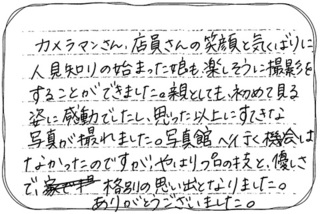 カメラマンさん、店員さんの笑顔と気くばりに
人見知りの始まった娘も楽しそうに撮影を
することができました。親としても、初めて見る
姿に感動でしたし、思った以上にすてきな
写真が撮れました。写真館へ行く機会は
なかったのですが、やはりプロの技と、優しさ
で 格別の思い出となりました。
ありがとうございました。